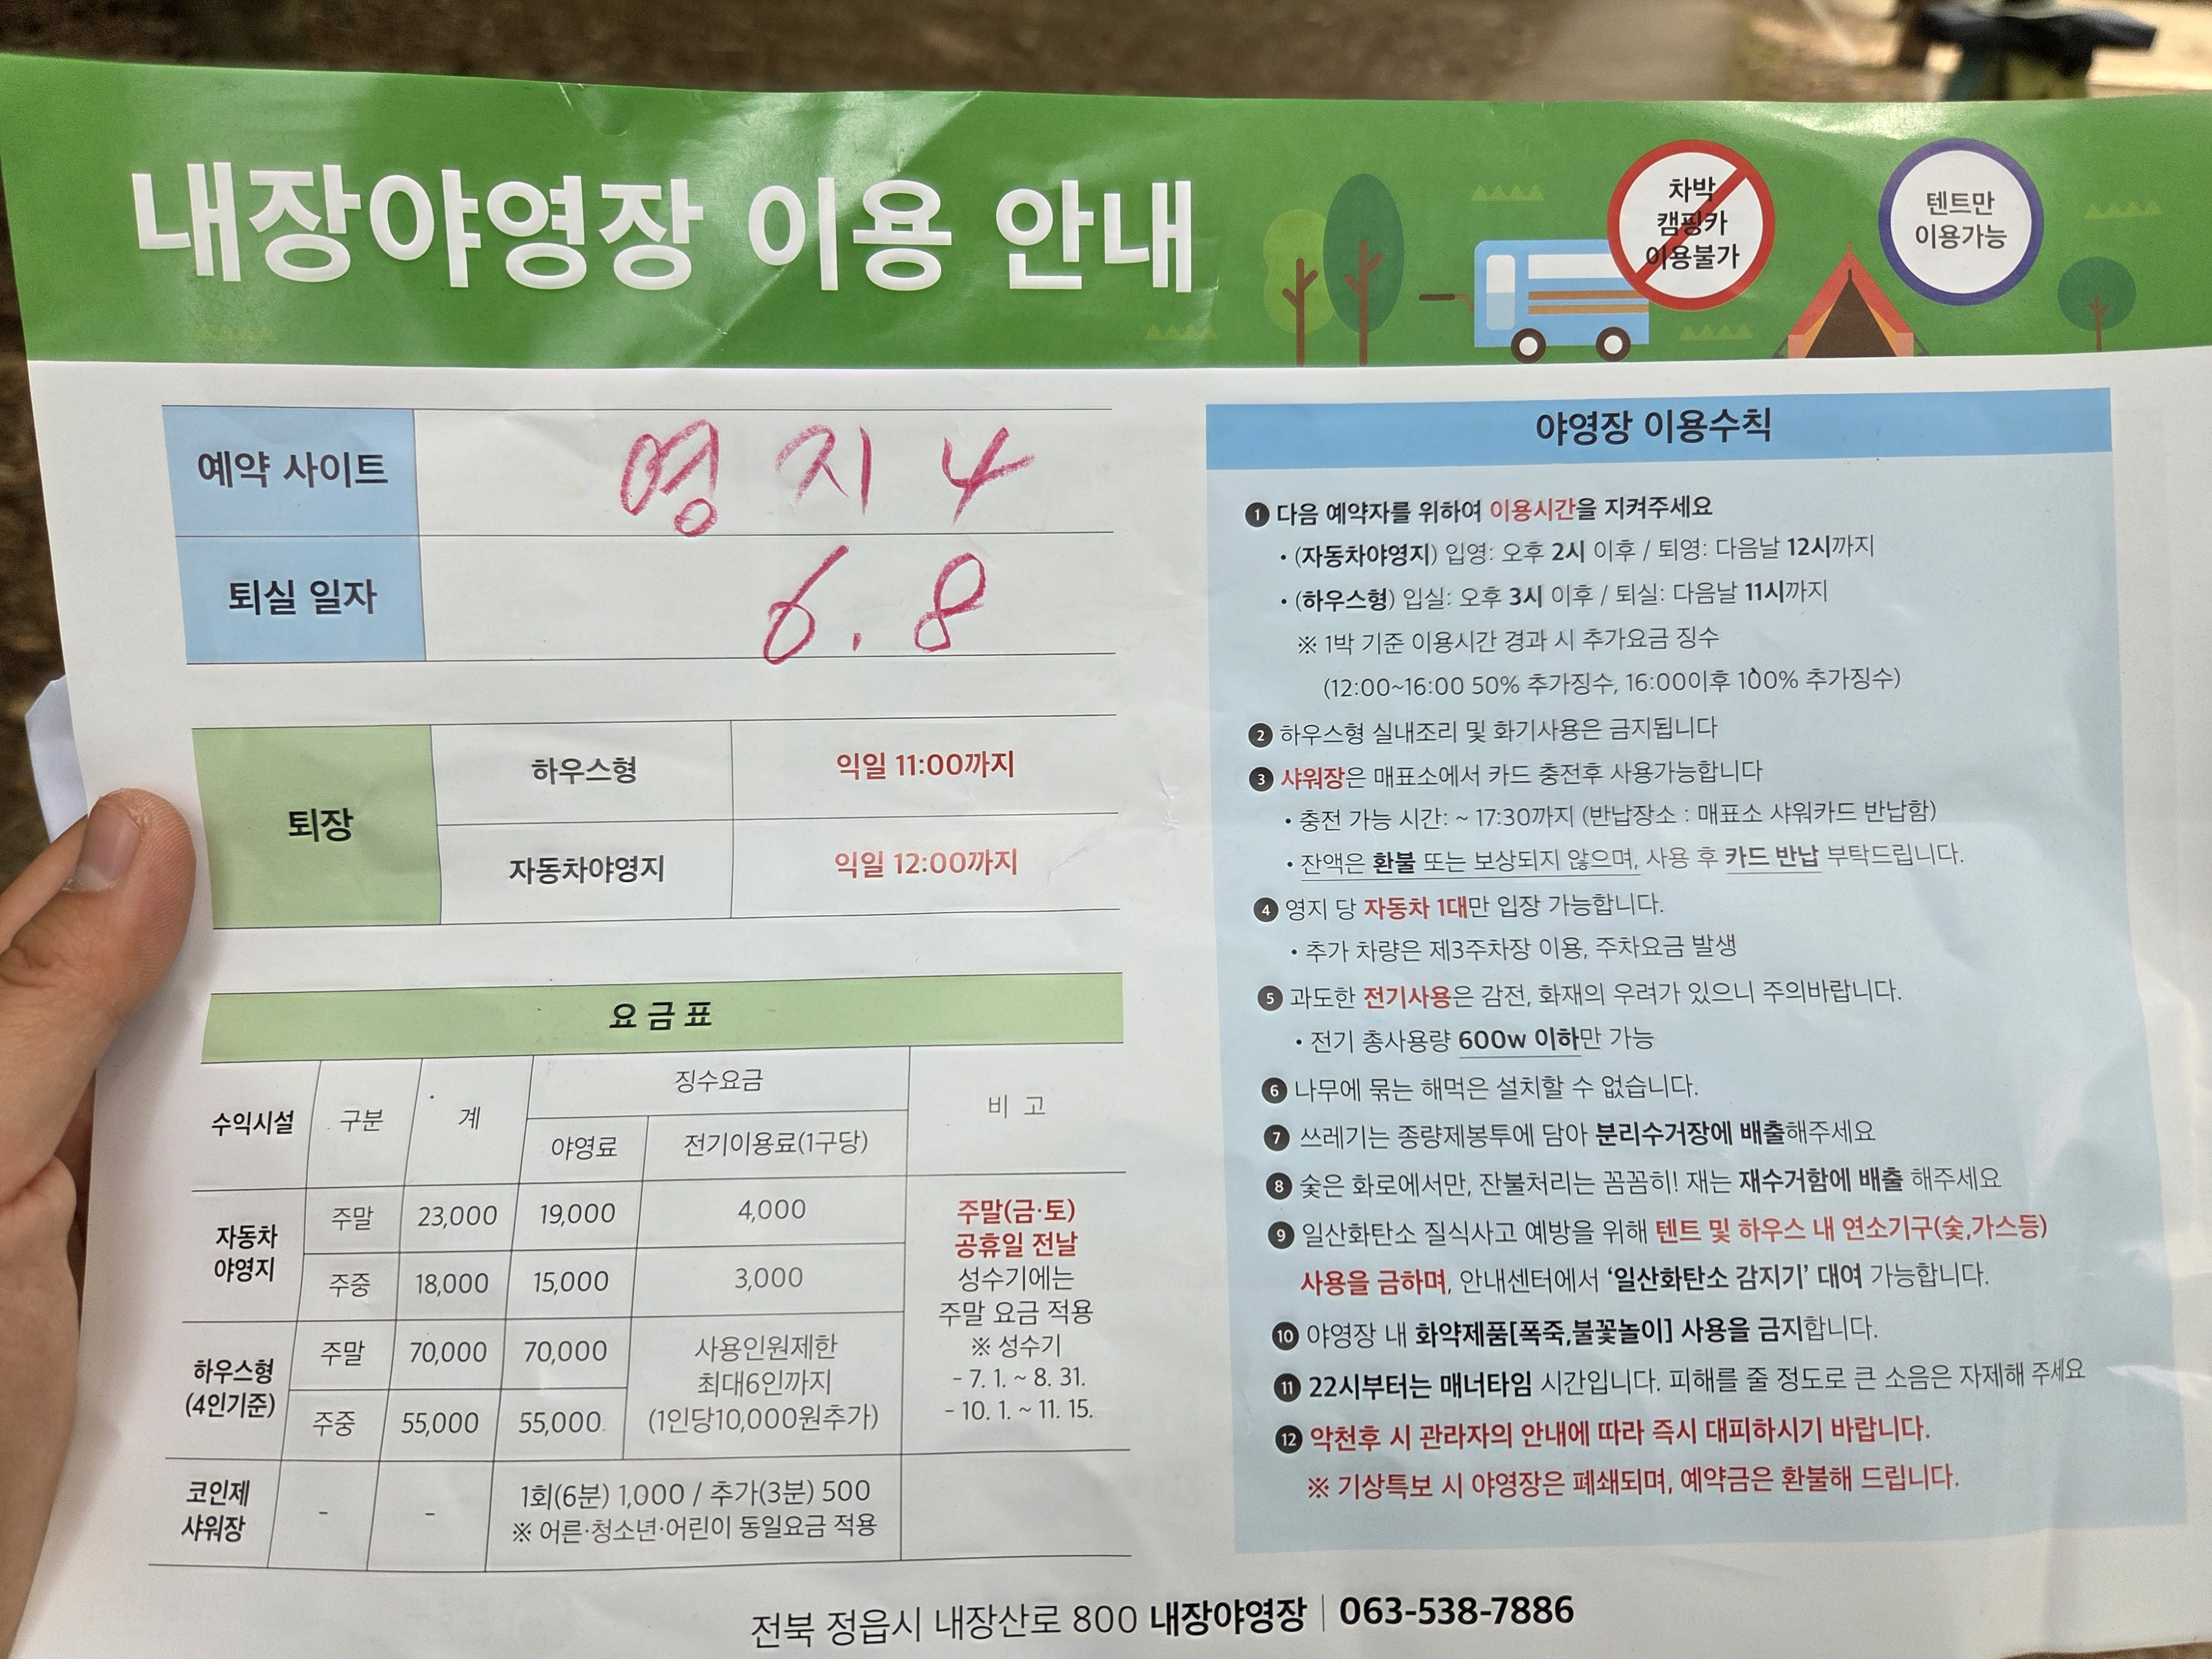 내장야영장 이용 안내
차박
캠핑카
이용불가
텐트만
이용가능
예약 사이트 영지 4
퇴실 일자 6.8
퇴장
하우스형 익일 11:00까지
자동차야영지 익일 12:00까지
요금표
수익시설 구분 계 징수요금 비 고
야영료 전기이용료(1구당)
자동차
야영지
주말 23,000 19,000 4,000
주중 18,000 15,000 3,000
하우스형
(4인기준)
주말 70,000 70,000
주중 55,000 55,000
사용인원제한
최대6인까지
(1인당10,000원추가)
주말(금·토)
공휴일 전날
성수기에는
주말 요금 적용
※ 성수기
- 7. 1. ~ 8. 31.
- 10. 1. ~ 11. 15.
코인제
샤워장
- -
1회(6분) 1,000 / 추가(3분) 500
※ 어른·청소년·어린이 동일요금 적용
야영장 이용수칙
1 다음 예약자를 위하여 이용시간을 지켜주세요
• (자동차야영지) 입영: 오후 2시 이후 / 퇴영: 다음날 12시까지
• (하우스형) 입실: 오후 3시 이후 / 퇴실: 다음날 11시까지
※ 1박 기준 이용시간 경과 시 추가요금 징수
(12:00~16:00 50% 추가징수, 16:00이후 100% 추가징수)
2 하우스형 실내조리 및 화기사용은 금지됩니다
3 샤워장은 매표소에서 카드 충전후 사용가능합니다
• 충전 가능 시간: ~ 17:30까지 (반납장소 : 매표소 샤워카드 반납함)
• 잔액은 환불 또는 보상되지 않으며, 사용 후 카드 반납 부탁드립니다.
4 영지 당 자동차 1대만 입장 가능합니다.
• 추가 차량은 제3주차장 이용, 주차요금 발생
5 과도한 전기사용은 감전, 화재의 우려가 있으니 주의바랍니다.
• 전기 총사용량 600w 이하만 가능
6 나무에 묶는 해먹은 설치할 수 없습니다.
7 쓰레기는 종량제봉투에 담아 분리수거장에 배출해주세요
8 숯은 화로에서만, 잔불처리는 꼼꼼히! 재는 재수거함에 배출 해주세요
9 일산화탄소 질식사고 예방을 위해 텐트 및 하우스 내 연소기구(숯,가스등)
사용을 금하며, 안내센터에서 '일산화탄소 감지기' 대여 가능합니다.
10 야영장 내 화약제품[폭죽,불꽃놀이] 사용을 금지합니다.
11 22시부터는 매너타임 시간입니다. 피해를 줄 정도로 큰 소음은 자제해 주세요
12 악천후 시 관라자의 안내에 따라 즉시 대피하시기 바랍니다.
※ 기상특보 시 야영장은 폐쇄되며, 예약금은 환불해 드립니다.
전북 정읍시 내장산로 800 내장야영장 | 063-538-7886